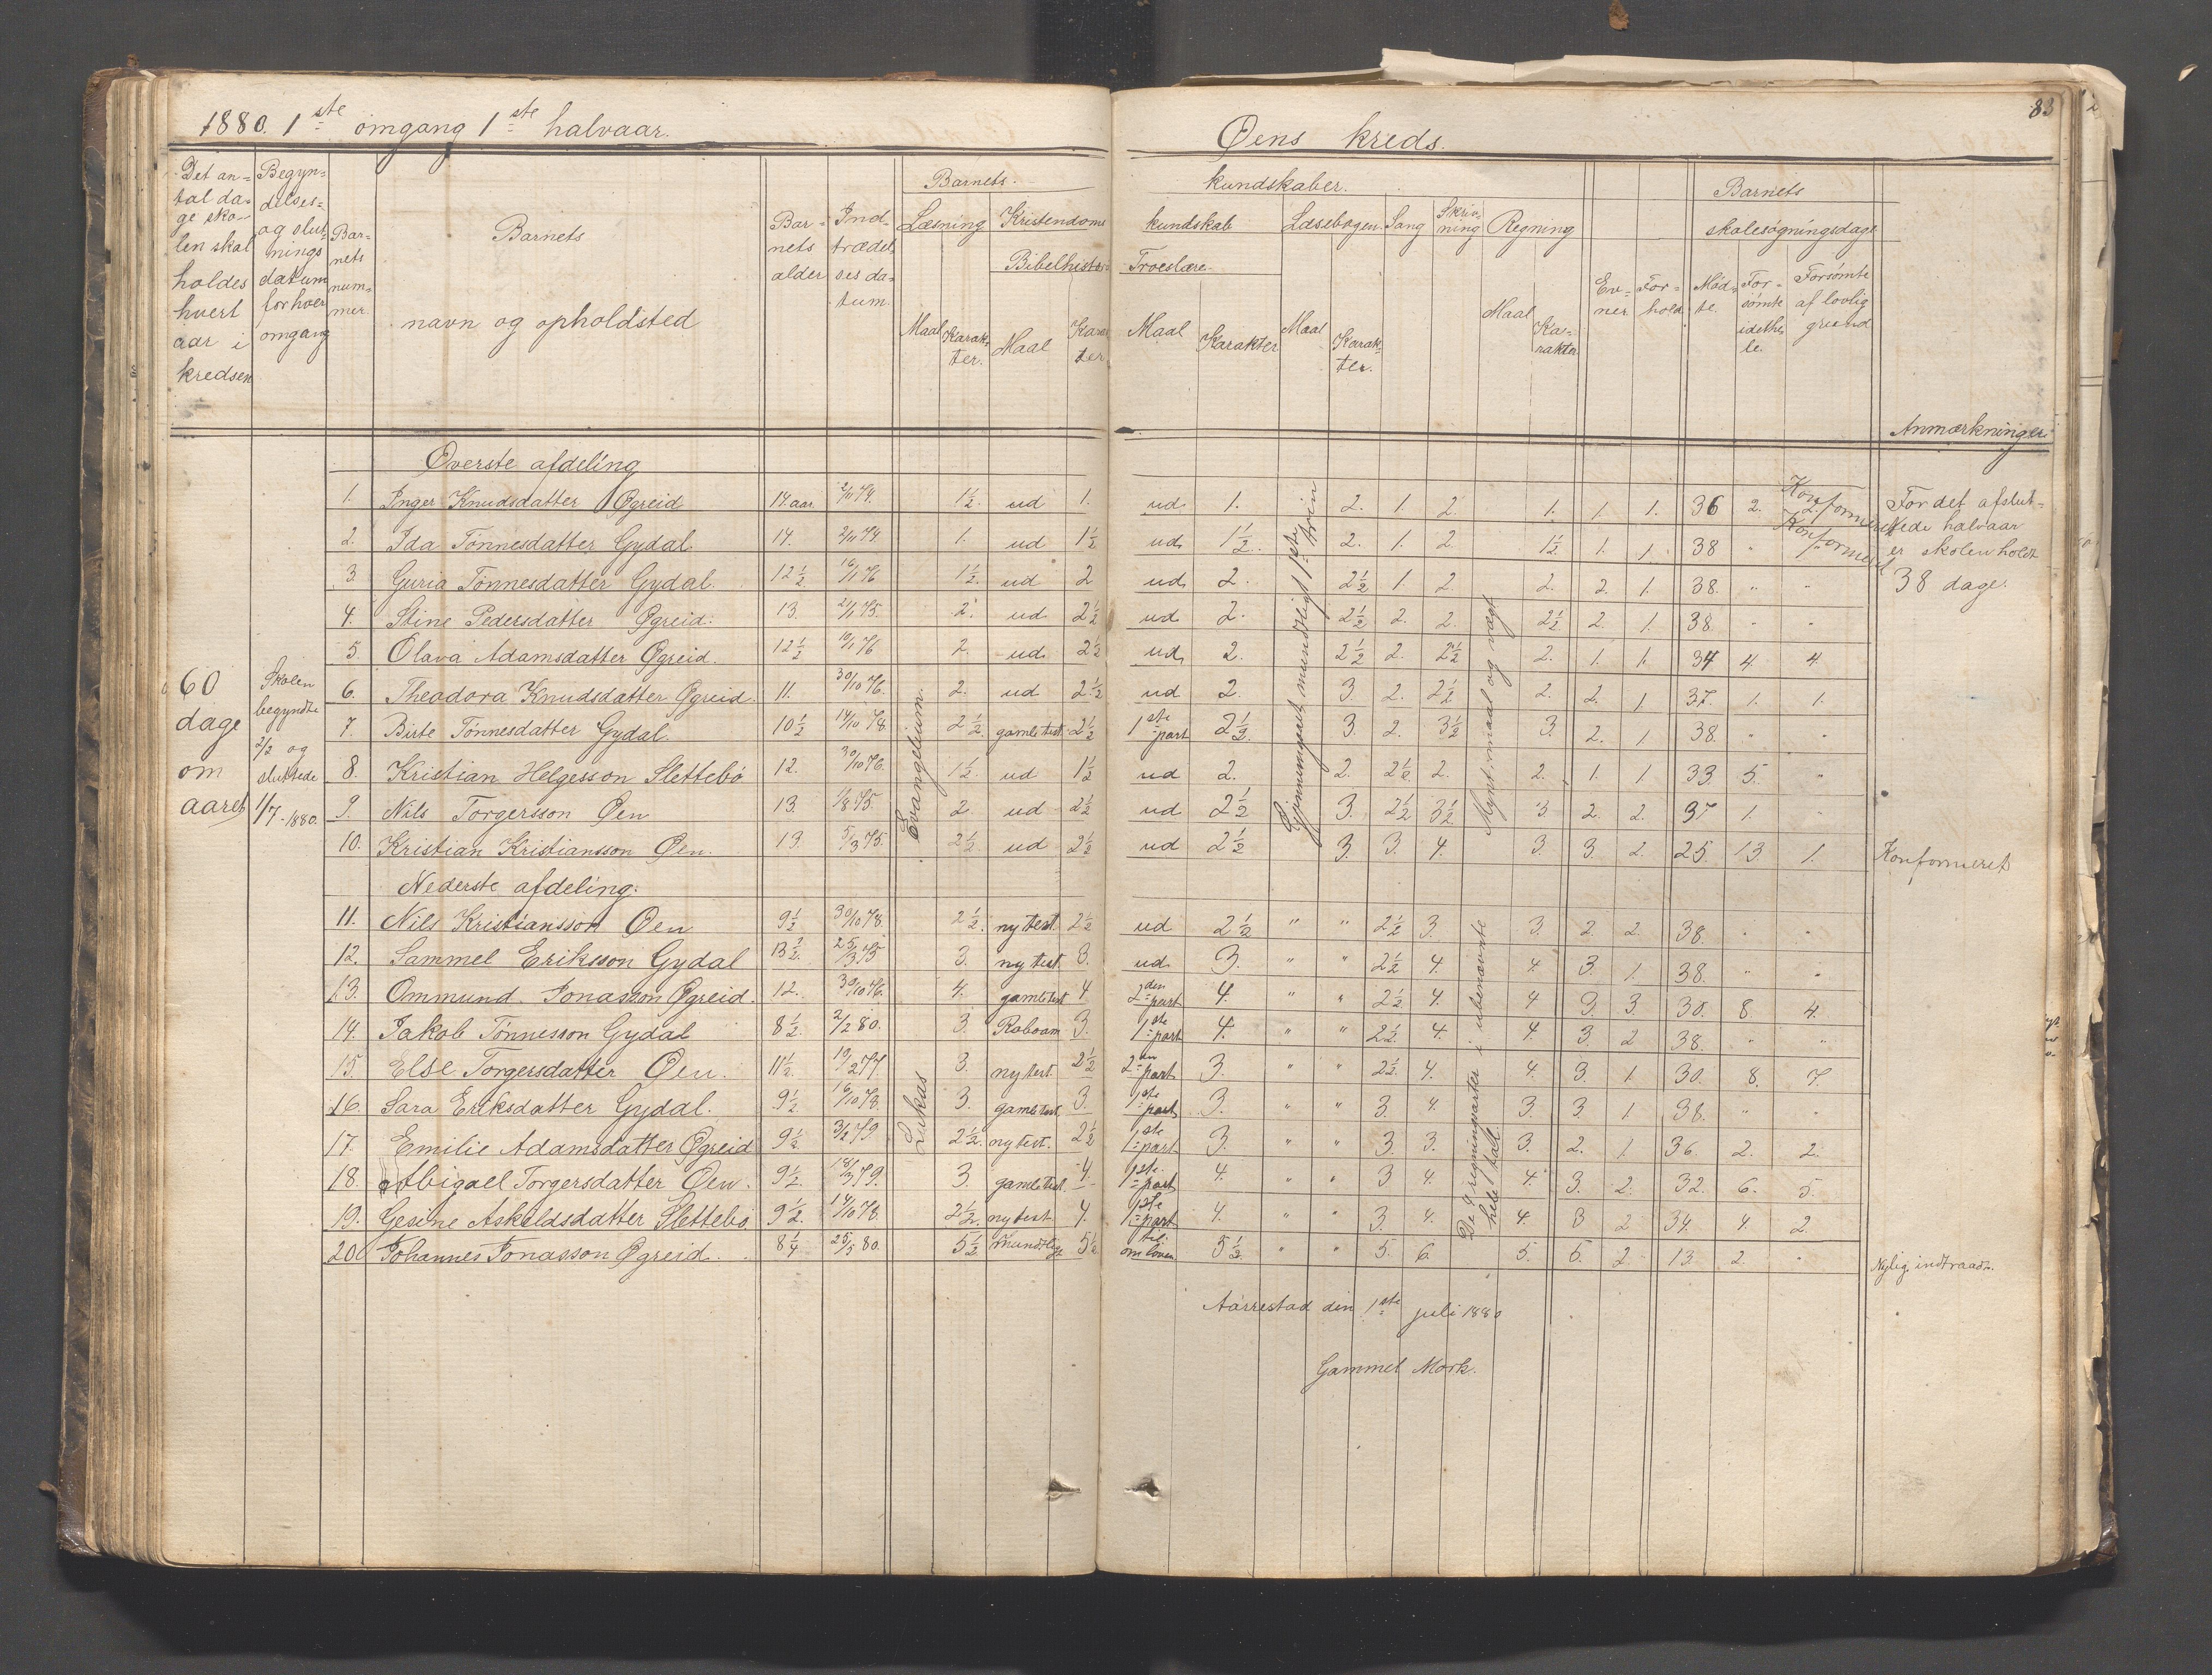 1880. 1ste omgang 1ste halvaar.
Øens kreds.
83
Det an= tal da= ge sko= len skal holdes hvert aar i kredsen
Begyn= delses= og slut= nings datum for hver omgang
Bar= nets num= mer.
Barnets navn og opholdsted
Bar= nets alder
Ind= trædel= ses da= tum.
Barnets kundskaber.
Læsning
Maal
Karak= ter.
Kristendoms kundskab
Bibelhistorie
Maal
Karak ter.
Troeslære
Maal
Karakter
Læsebogen
Maal
Karak= ter.
Sang
Skriv= ning
Regning
Maal
Ka= rakter
Ev= ner
For= hold
Barnets skolesøgningsdage
Mød= te.
For= sømte idethe le.
Forsømte af lovlig grund
Anmærkninger
60 dage om aaret
Skolen begyndte 2/2 og sluttede 1/7-1880.
Evangelium.
Lukas
Gjennemgaaet mundtligt 1ste trin
Mynt, maal og vægt
De 4 regningsarter i ubenævnte hele tall.
Øverste afdeling
1. Inger Knudsdatter Øgreid 14 aar. 2/11 74. 1½. ud 1. ud. 1. 2. 1. 2. 1. 1. 1. 36 2. 2. Konformeret
For det afslut= tede halvaar er skolen holdt 38 dage.
2. Ida Tønnesdatter Gydal 14. 2/11 74. 1. ud 1½ ud. 1½. 2. 1. 2. 1½. 1. 1. 38 " " Konformeret
3. Guria Tønnesdatter Gydal. 12½ 10/1 76 1½. ud 2 ud. 2. 2½ 1. 2 2. 2. 1. 38. " "
4. Stine Pedersdatter Øgreid. 13. 2/1 75. 2. ud. 2½ ud. 2. 2½. 2. 2. 2½. 2. 1. 38. " "
5. Olava Adamsdatter Øgreid. 12½ 10/1 76 2. ud. 2½ ud. 2. 2½ 2. 2½ 2. 1. 1. 34 4. 4.
6. Theodora Knudsdatter Øgreid. 11. 30/10 76. 2. ud 2½ ud 2. 3. 2. 2½ 2. 2. 1 37. 1. 1.
7. Birte Tønnesdatter Gydal. 10½ 14/10 78. 2½. gamle test. 2½ 1ste part 2½. 3. 2. 3½ 3. 2. 1. 38. " "
8. Kristian Helgesson Slettebø 12. 30/10 76. 1½. ud 1½ ud 2. 2. 2½. 2. 2. 1. 1 33 5. "
9. Nils Torgersson Øen 13 1/8 75. 2 ud 2½ ud 2½ 3. 2½ 3½ 3. 2. 2. 37 1. "
10. Kristian Kristiansson Øen. 13. 5/3 75. 2½ ud 2½ ud 2½ 3. 3. 4. 3. 3. 2. 25. 13. 1. Konformeret
Nederste afdeling.
11. Nils Kristiansson Øen 9½ 30/10 78. 2½. ny test. 2½ ud 2½ " " 2½ 3. 3. 2. 2. 38. " "
12. Sammel Eriksson Gydal 13½. 25/3 75 3. ny test. 3. ud. 3. " " 2½ 4. 4. 3. 1. 38. " "
13. Ommund Jonasson Øgreid. 12. 30/10 76. 4. gamle test 4 2den part 4. " " 2½. 4. 4 3. 3. 30. 8. 4.
14. Jakob Tønnesson Gydal 8½. 2/2 80. 3. Roboam 3. 1ste part 4. " " 2½. 4. 4. 3. 2 38. " "
15. Else Torgersdatter Øen. 11½. 10/2 77. 3. ny test 2½ 2den part 3. " " 2½. 4. 4. 3. 1. 30. 8. 7.
16. Sara Eriksdatter Gydal. 9½. 16/10 78. 3. gamle test. 3. 1ste part 3. " " 3 4. 3. 3. 1 38. " "
17. Emilie Adamsdatter Øgreid 9½. 3/2 79 2½. ny test. 2½ 1ste part 3. " " 3. 3. 3. 2. 1. 36. 2. 2.
18. Abigael Torgersdatter Øen. 9½. 18/3 79. 3. gamle test. 4 1ste part 4. " " 3 4. 4. 3. 2. 32. 6. 5.
19. Gesine Askeldsdatter Slettebø. 9½. 14/10 78. 2½. ny test 4. 1ste part 4. " " 3. 4. 4. 3 2 34. 4. 2.
20. Johannes Jonasson Øgreid. 8¼ 25/5 80. 5½ mundtlige 5½ til: om loven 5½ " " 5. 6 5. 5. 2. 13. 2. " Nylig indtraadt.
Aarrestad den 1ste juli 1880
Gammel Mork.